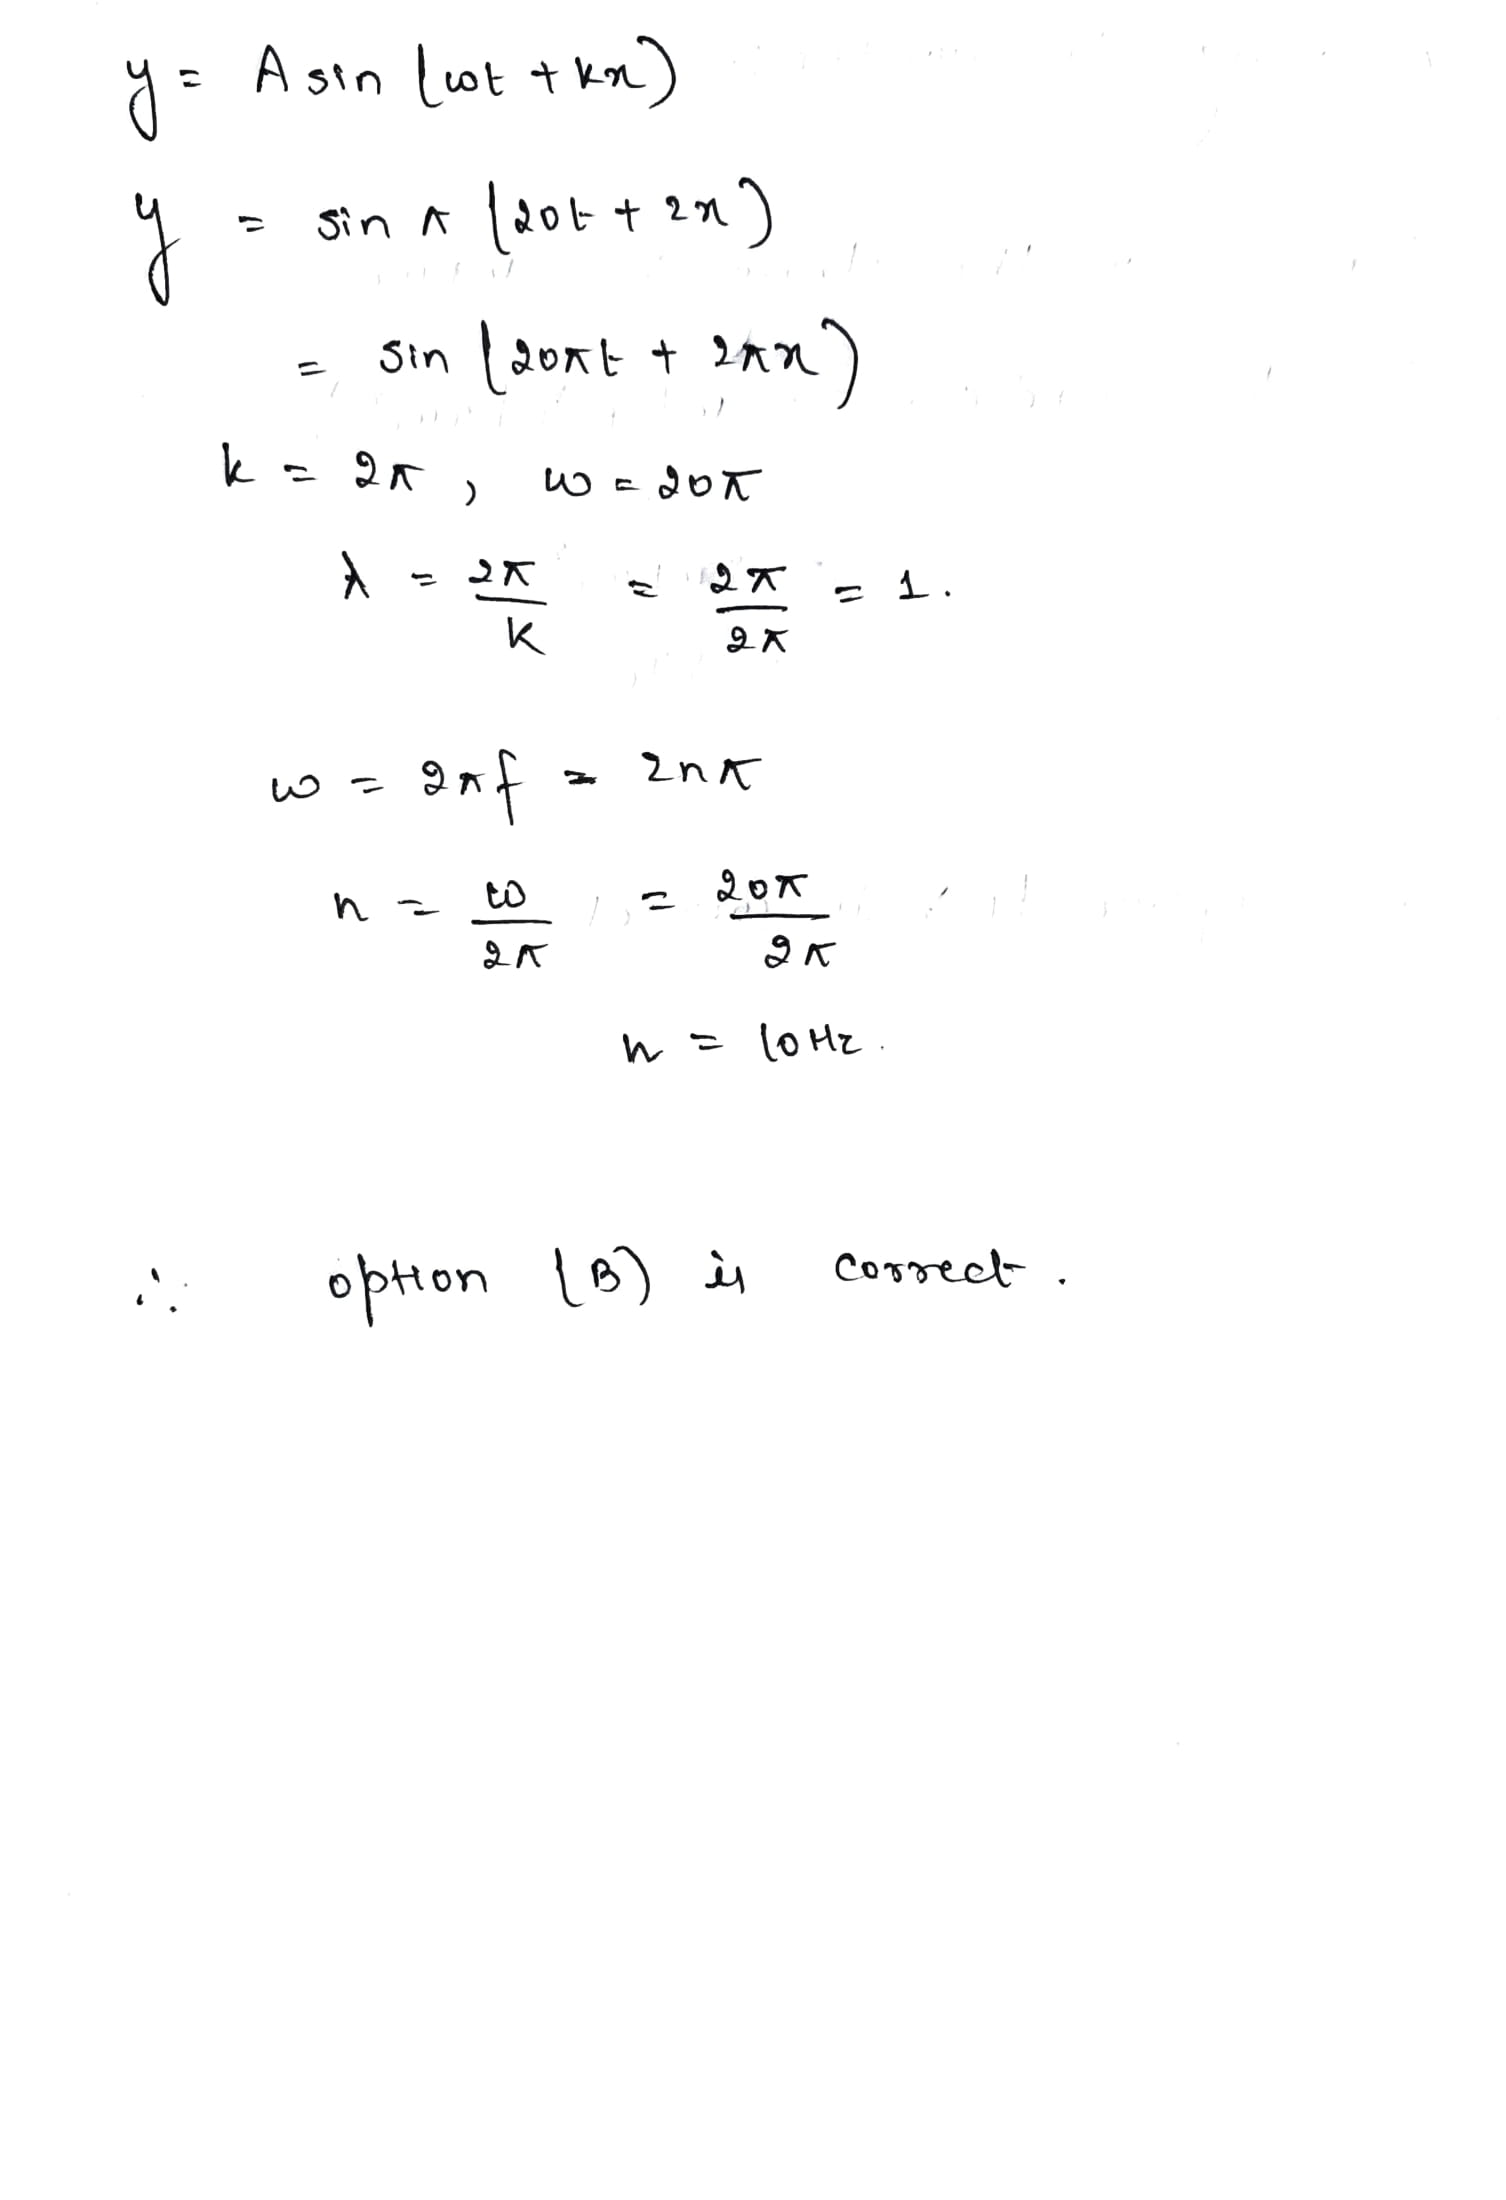 y = A sin (ωt + kx)
y = sin π (20t + 2x)
= sin (20πt + 2πx)
k = 2π , ω = 20π
λ = 2π/k = 2π/2π = 1.
ω = 2πf = 2nπ
n = ω/2π = 20π/2π
n = 10Hz.
∴ option (B) is correct.